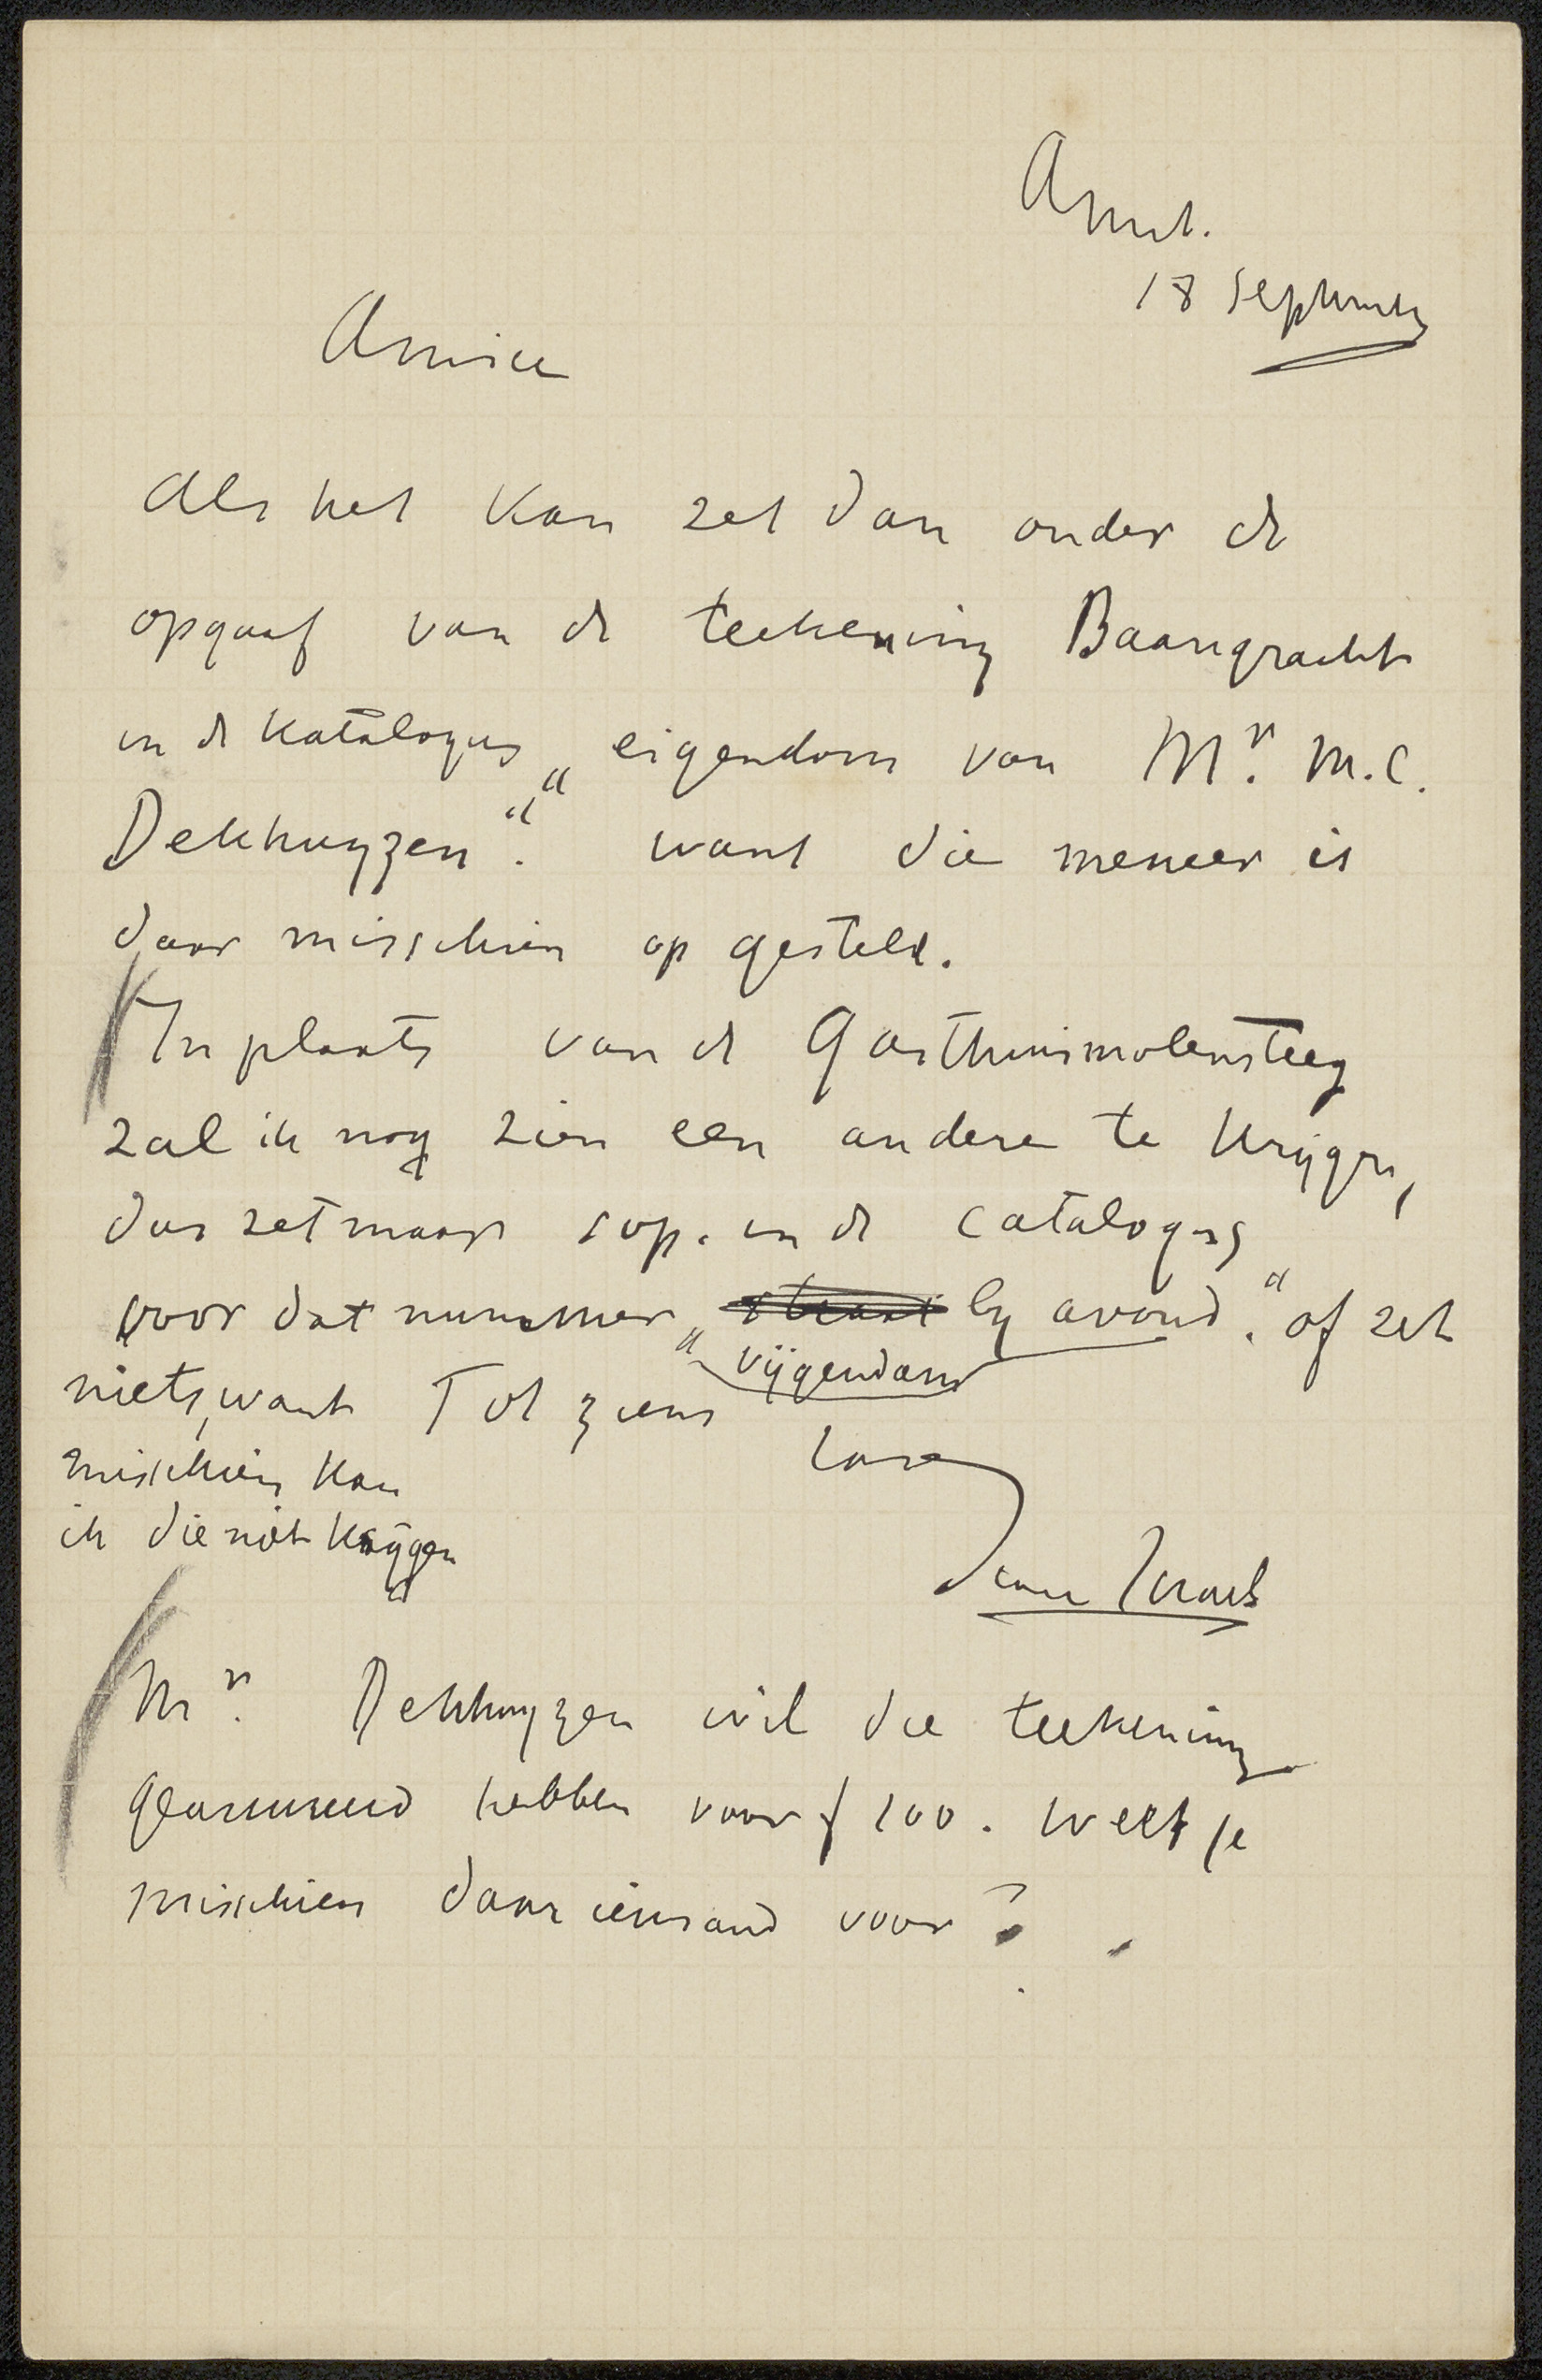 Amst.
18 September
Amice
Als het kan zet dan onder de
opgaaf van de teekening Baangracht
in de katalogus „eigendom van Mr. M.C.
Dekhuyzen”. want die meneer is
daar misschien op gesteld.
In plaats van de Gasthuismolensteeg
zal ik nog zien een andere te krijgen,
dus zet maar s.v.p. in de catalogus
voor dat nummer „straat by avond.” of zet
vijgendam
niets, want Tot ziens
misschien kan
ik die niet krijgen
Isaac Israels
Mr. Dekhuyzen wil die teekening
geassureerd hebben voor f 100. Weet je
misschien daar iemand voor?